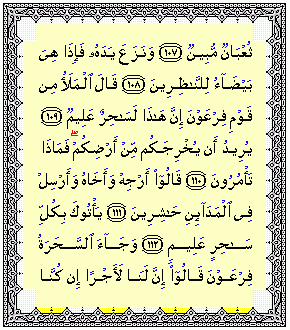 ثُعْبَانٌ مُّبِينٌ ﴿١٠٧﴾ وَنَزَعَ يَدَهُۥ فَإِذَا هِىَ
بَيْضَآءُ لِلنَّـٰظِرِينَ ﴿١٠٨﴾ قَالَ ٱلْمَلَأُ مِن
قَوْمِ فِرْعَوْنَ إِنَّ هَـٰذَا لَسَـٰحِرٌ عَلِيمٌ ﴿١٠٩﴾
يُرِيدُ أَن يُخْرِجَكُم مِّنْ أَرْضِكُمْ ۖ فَمَاذَا
تَأْمُرُونَ ﴿١١٠﴾ قَالُوٓا۟ أَرْجِهْ وَأَخَاهُ وَأَرْسِلْ
فِى ٱلْمَدَآئِنِ حَـٰشِرِينَ ﴿١١١﴾ يَأْتُوكَ بِكُلِّ
سَـٰحِرٍ عَلِيمٍ ﴿١١٢﴾ وَجَآءَ ٱلسَّحَرَةُ
فِرْعَوْنَ قَالُوٓا۟ إِنَّ لَنَا لَأَجْرًا إِن كُنَّا